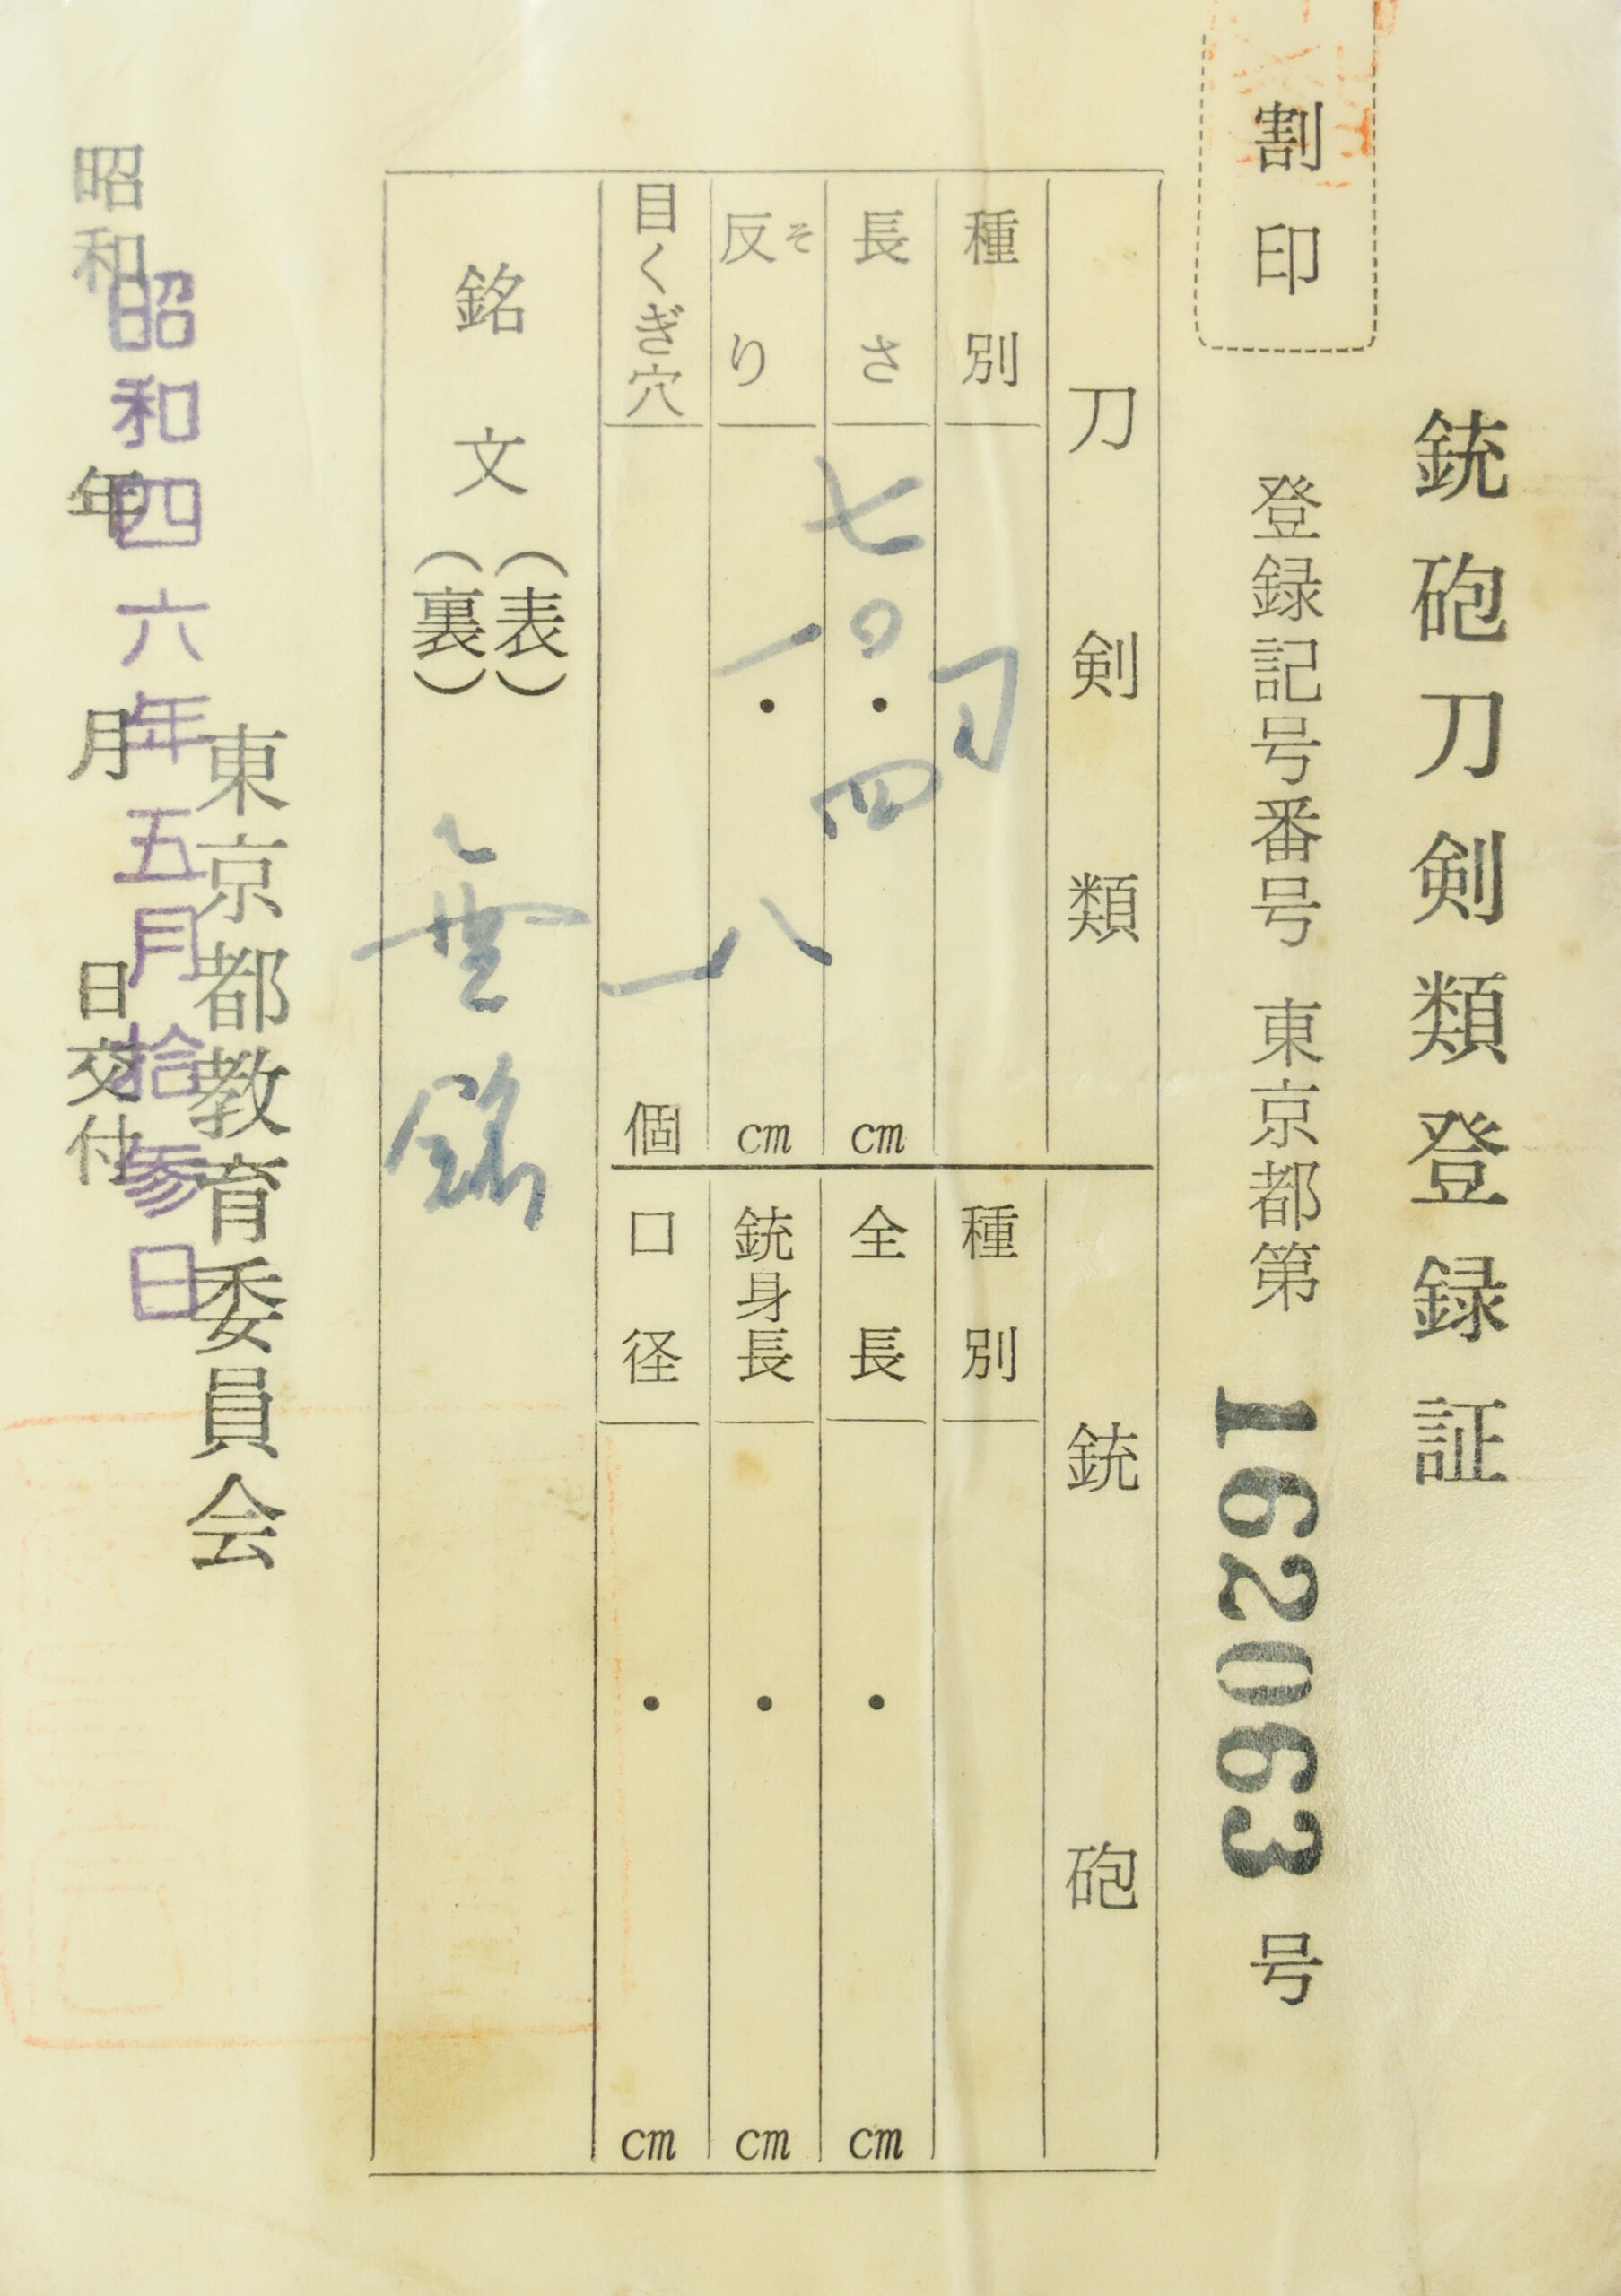 銃砲刀剣類登録証
割印
登録記号番号 東京都第 162063 号
刀剣類
種別 刀
長さ 七〇・四 cm
反り 一・八 cm
そ
目くぎ穴 一 個
銃砲
種別
全長 ・ cm
銃身長 ・ cm
口径 ・ cm
銘文 (表)
(裏)
無銘
東京都教育委員会
昭和四六年五月拾参日
昭和 年 月 日交付